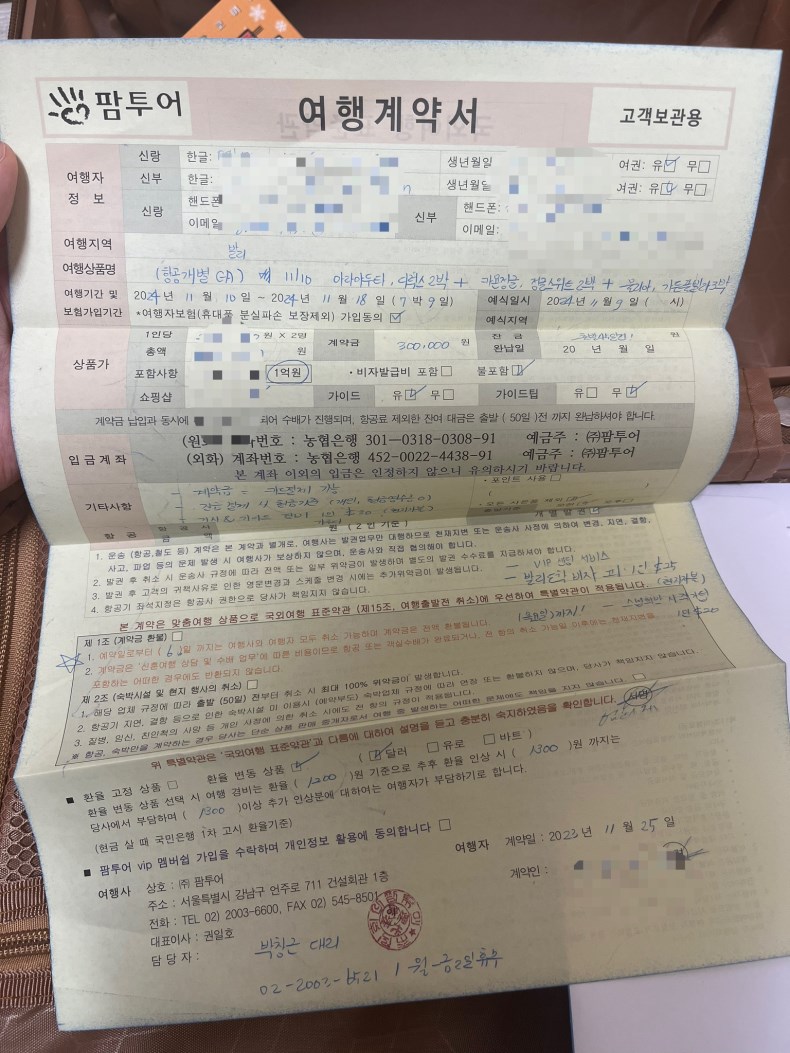 팜투어
여행계약서
고객보관용
여행자 정보
신랑 한글: 생년월일 여권: 유☑ 무□
신부 한글: 생년월일 여권: 유☑ 무□
신랑 핸드폰 신부 핸드폰:
이메일 이메일:
여행지역 발리
여행상품명 (항공개별 GA) 11/10 아라야두타, 디럭스 2박 + 2박 +
여행기간 및 보험가입기간 2024년 11월 10일 ~ 2024년 11월 18일 (7박 9일) 예식일시 2024년 11월 9일 ( 시)
*여행자보험(휴대품 분실파손 보장제외) 가입동의 ☑ 예식지역
상품가 1인당 원 X 2명 계약금 300,000 원 잔금 원
총액 원 완납일 20 년 월 일
포함사항 1억원 • 비자발급비 포함□ 불포함☑
쇼핑샵 가이드 유☑ 무□ 가이드팁 유□ 무☑
계약금 납입과 동시에 되어 수배가 진행되며, 항공료 제외한 잔여 대금은 출발 (50일)전 까지 완납하셔야 합니다.
입금계좌 (원 번호 : 농협은행 301-0318-0308-91 예금주 : ㈜팜투어
(외화) 계좌번호 : 농협은행 452-0022-4438-91 예금주 : ㈜팜투어
본 계좌 이외의 입금은 인정하지 않으니 유의하시기 바랍니다.
기타사항 - 계약금 = 카드결제 가능
• 포인트 사용 □
개별발권
원 (2인 기준)
1. 운송 (항공,철도 등) 계약은 본 계약과 별개로, 여행사는 발권업무만 대행하므로 천재지변 또는 운송사 사정에 의하여 변경, 지연, 결항,
사고, 파업 등의 문제 발생 시 여행사가 보상하지 않으며, 운송사와 직접 협의해야 합니다.
2. 발권 후 취소 시 운송사 규정에 따라 전액 또는 일부 위약금이 발생하며 별도의 발권 수수료를 지급하셔야 합니다.
3. 발권 후 고객의 귀책사유로 인한 영문변경과 스케줄 변경 시에는 추가위약금이 발생됩니다.
4. 항공기 좌석지정은 항공사 권한으로 당사가 책임지지 않습니다.
- VIP 센딩 서비스
- 발리 도착 비자 피 : 1인 $25
본 계약은 맞춤여행 상품으로 국외여행 표준약관 (제15조, 여행출발전 취소)에 우선하여 특별약관이 적용됩니다.
제 1조 (계약금 환불) □
1. 예약일로부터 ( 6 )일 까지는 여행사와 여행자 모두 취소 가능하며 계약금은 전액 환불됩니다.
2. 계약금은 '신혼여행 상담 및 수배 업무'에 따른 비용이므로 항공 또는 객실수배가 완료되거나, 전 항의 취소 가능일 이후에는 천재지변을
포함하는 어떠한 경우에도 반환되지 않습니다.
1인 $20
제 2조 (숙박시설 및 현지 행사의 취소) □
1. 해당 업체 규정에 따라 출발 (50일) 전부터 취소 시 최대 100% 위약금이 발생합니다.
2. 항공기 지연, 결항 등으로 인한 숙박시설 미 이용시 (예약부도) 숙박업체 규정에 따라 연장 또는 환불하지 않으며, 당사가 책임지지 않습니다.
3. 질병, 임신, 친인척의 사망 등 개인 사정에 의한 취소 시에도 전 항의 규정이 적용됩니다.
※ 항공, 숙박만을 계약하는 경우 당사는 단순 상품 판매 중개자로서 여행 중 발생하는 어떠한 문제에도 책임을 지지 않습니다. □
위 특별약관은 '국외여행 표준약관'과 다름에 대하여 설명을 듣고 충분히 숙지하였음을 확인합니다. 서명
■ 환율 고정 상품 □ 환율 변동 상품 ☑ ( ☑ 달러 □ 유로 □ 바트 )
환율 변동 상품 선택 시 여행 경비는 환율 ( 1200 )원 기준으로 추후 환율 인상 시 ( 1300 )원 까지는
당사에서 부담하며 ( 1300 )이상 추가 인상분에 대하여는 여행자가 부담하기로 합니다.
(현금 살 때 국민은행 1차 고시 환율기준)
■ 팜투어 vip 멤버쉽 가입을 수락하며 개인정보 활용에 동의합니다 □
여행자 계약일 : 2023년 11월 25일
계약인 :
여행사 상호 : ㈜ 팜투어
주소 : 서울특별시 강남구 언주로 711 건설회관 1층
전화 : TEL 02) 2003-6600, FAX 02) 545-8501
대표이사 : 권일호
담당자 : 박창근 대리
02-2003-6521